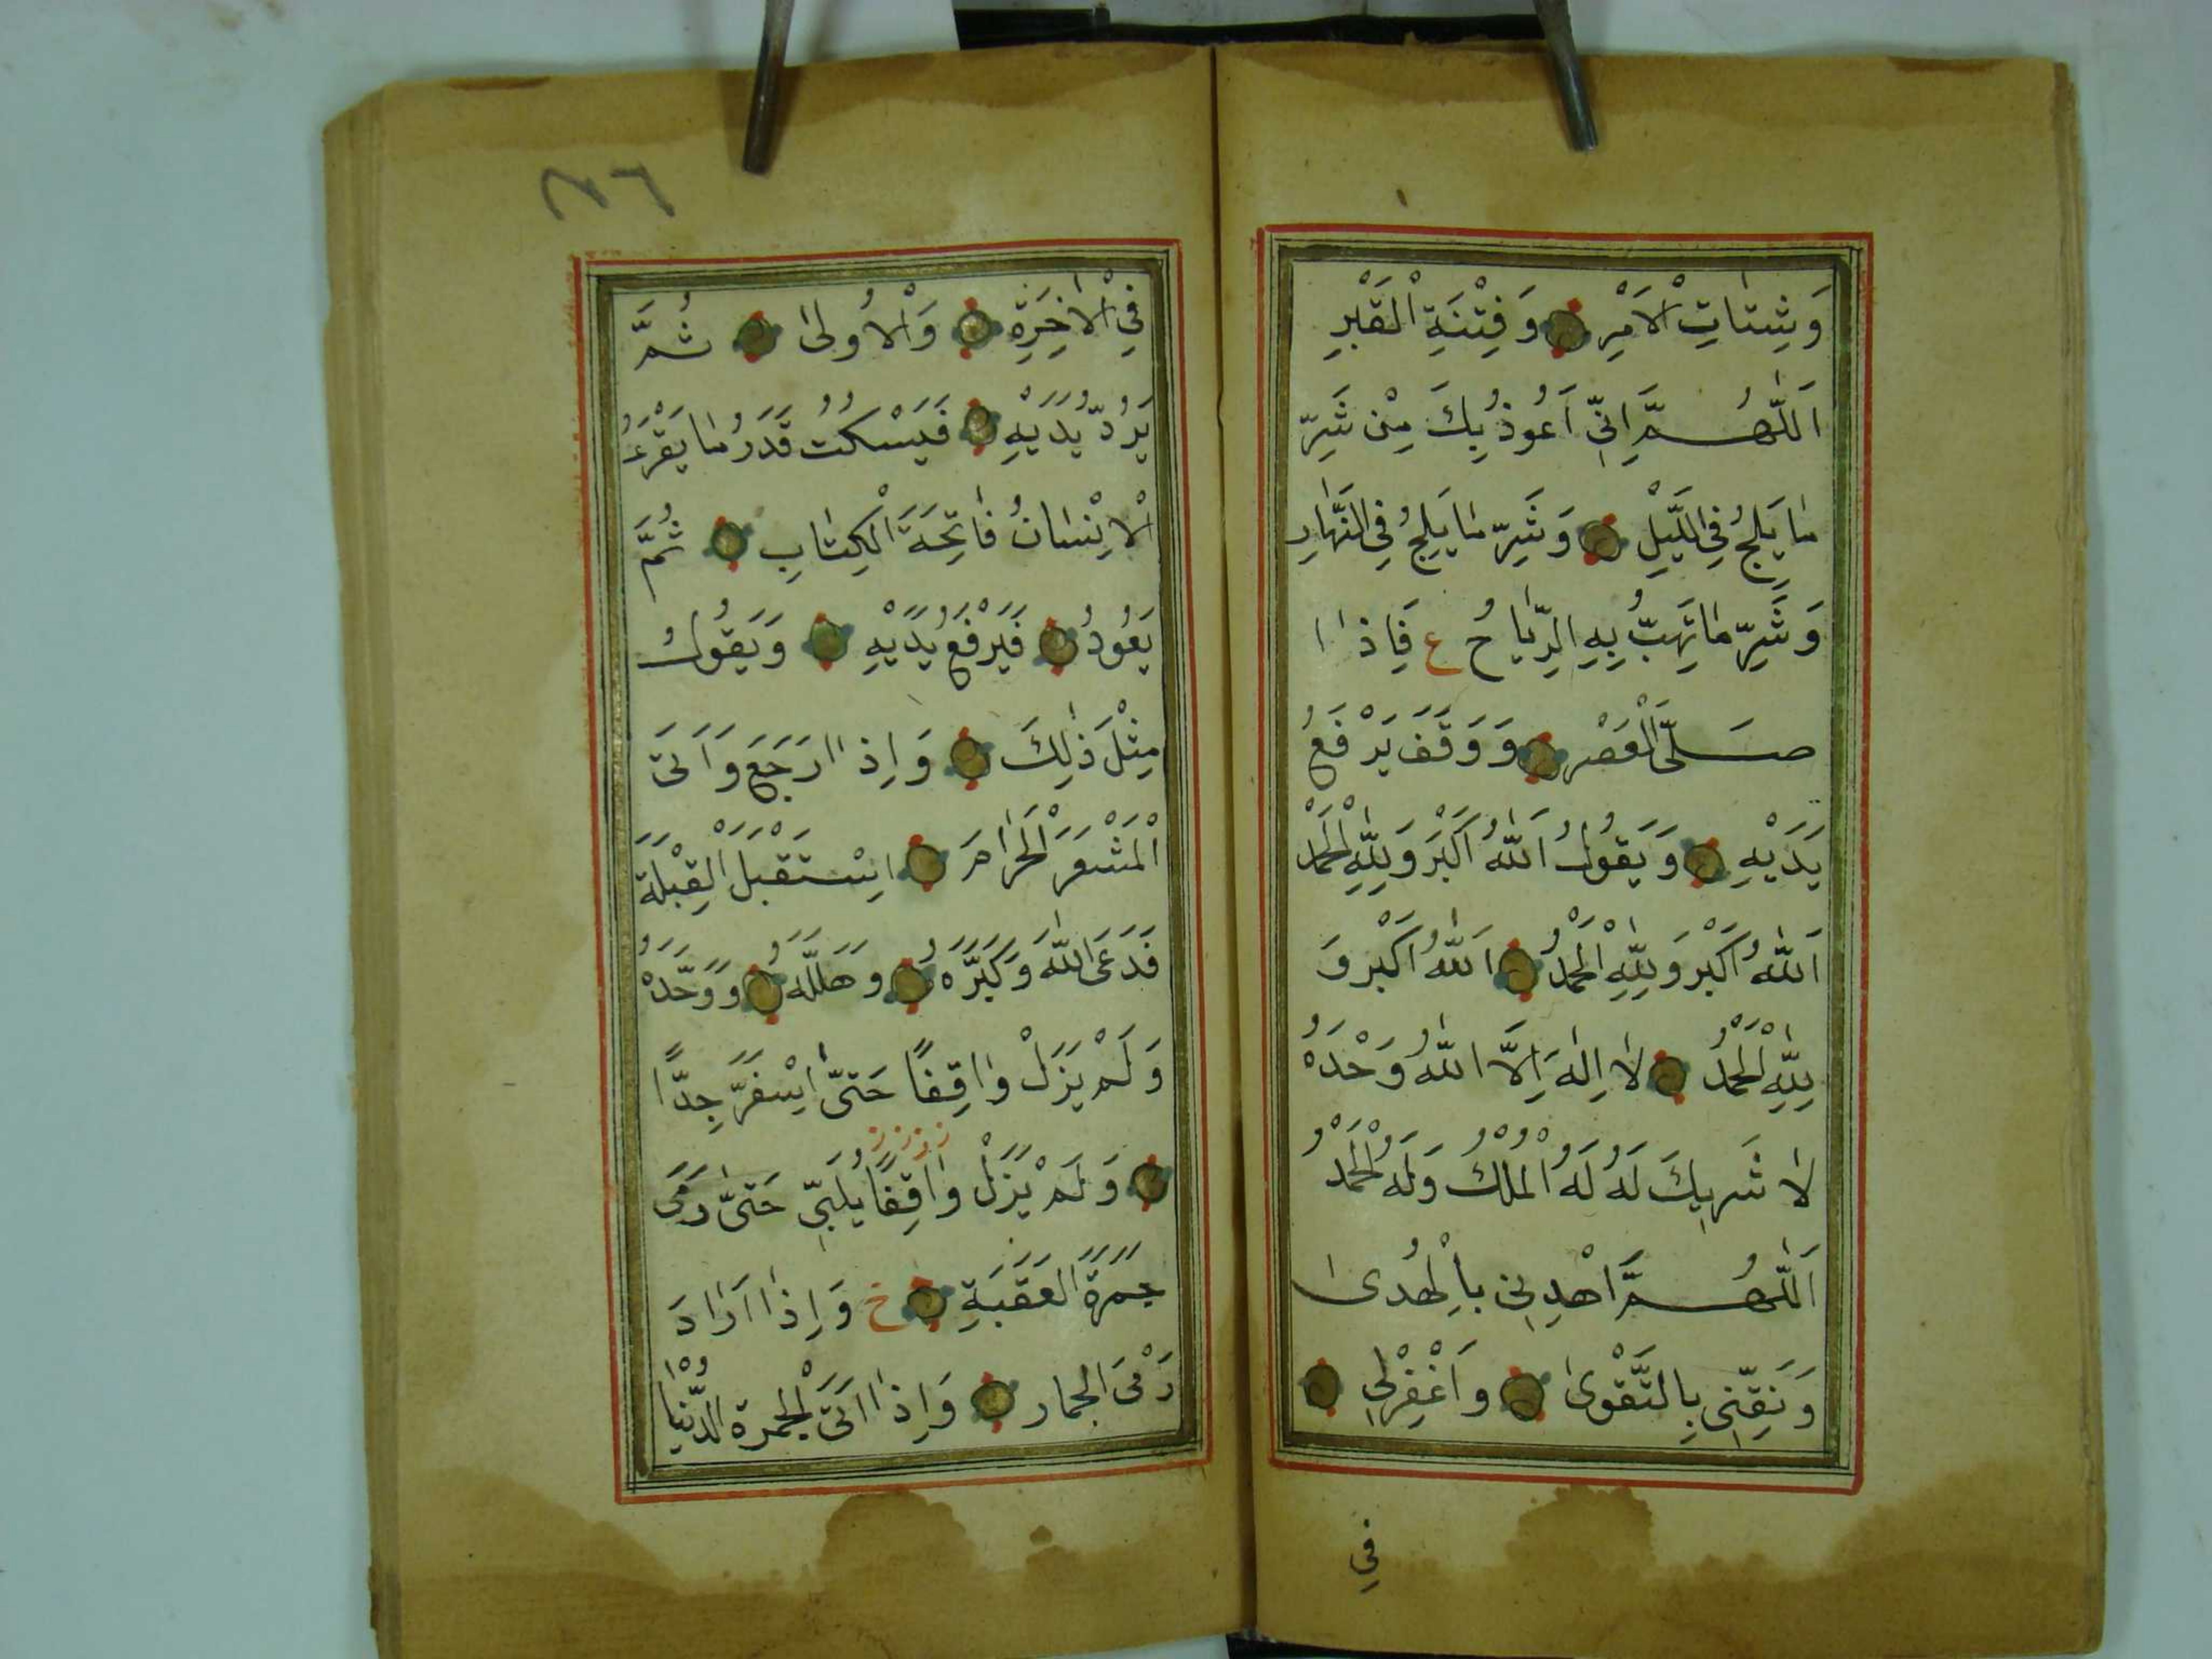 وَشَتَاتِ الْاَمْرِ وَفِتْنَةِ الْقَبْرِ
اَللّٰهُمَّ اِنِّي اَعُوذُ بِكَ مِنْ شَرِّ
مَا يَلِجُ فِي اللَّيْلِ وَشَرِّ مَا يَلِجُ فِي النَّهَارِ
وَشَرِّ مَا تَهُبُّ بِهِ الرِّيَاحُ ع فَاِذَا
صَلَّى الْعَصْرَ وَوَقَفَ يَرْفَعُ
يَدَيْهِ وَيَقُولُ اَللّٰهُ اَكْبَرُ وَلِلّٰهِ الْحَمْدُ
اَللّٰهُ اَكْبَرُ وَلِلّٰهِ الْحَمْدُ اَللّٰهُ اَكْبَرُ وَ
لِلّٰهِ الْحَمْدُ لَا اِلٰهَ اِلَّا اللّٰهُ وَحْدَهُ
لَا شَرِيكَ لَهُ لَهُ الْمُلْكُ وَلَهُ الْحَمْدُ
اَللّٰهُمَّ اهْدِنِي بِالْهُدٰى
وَنَقِّنِي بِالتَّقْوٰى وَاغْفِرْلِي
فِي
٢٧٦
فِي الْاٰخِرَةِ وَالْاُولٰى ثُمَّ
يَرُدُّ يَدَيْهِ فَيَسْكُتُ قَدَرَ مَا يَقْرَءُ
الْاِنْسَانُ فَاتِحَةَ الْكِتَابِ ثُمَّ
يَعُودُ فَيَرْفَعُ يَدَيْهِ وَيَقُولُ
مِثْلَ ذٰلِكَ وَاِذَا رَجَعَ وَاَتٰى
الْمَشْعَرَ الْحَرَامَ اِسْتَقْبَلَ الْقِبْلَةَ
فَدَعَى اللّٰهَ وَكَبَّرَهُ وَهَلَّلَهُ وَوَحَّدَهُ
وَلَمْ يَزَلْ وَاقِفًا حَتّٰى اِسْفَرَّ جِدًّا
وَلَمْ يَزَلْ وَاقِفًا يُلَبِّي حَتّٰى رَمٰى
جَمْرَةَ الْعَقَبَةِ خ وَاِذَا اَرَادَ
رَمْىَ الْجِمَارِ وَاِذَا اَتَى الْجَمْرَةَ الدُّنْيَا